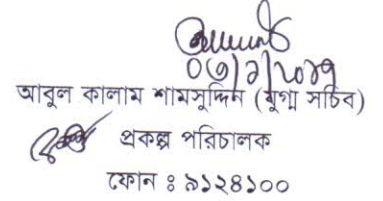 আবুল কালাম শামসুদ্দিন (যুগ্ম সচিব)
প্রকল্প পরিচালক
ফোন : ৯১২৪১০০